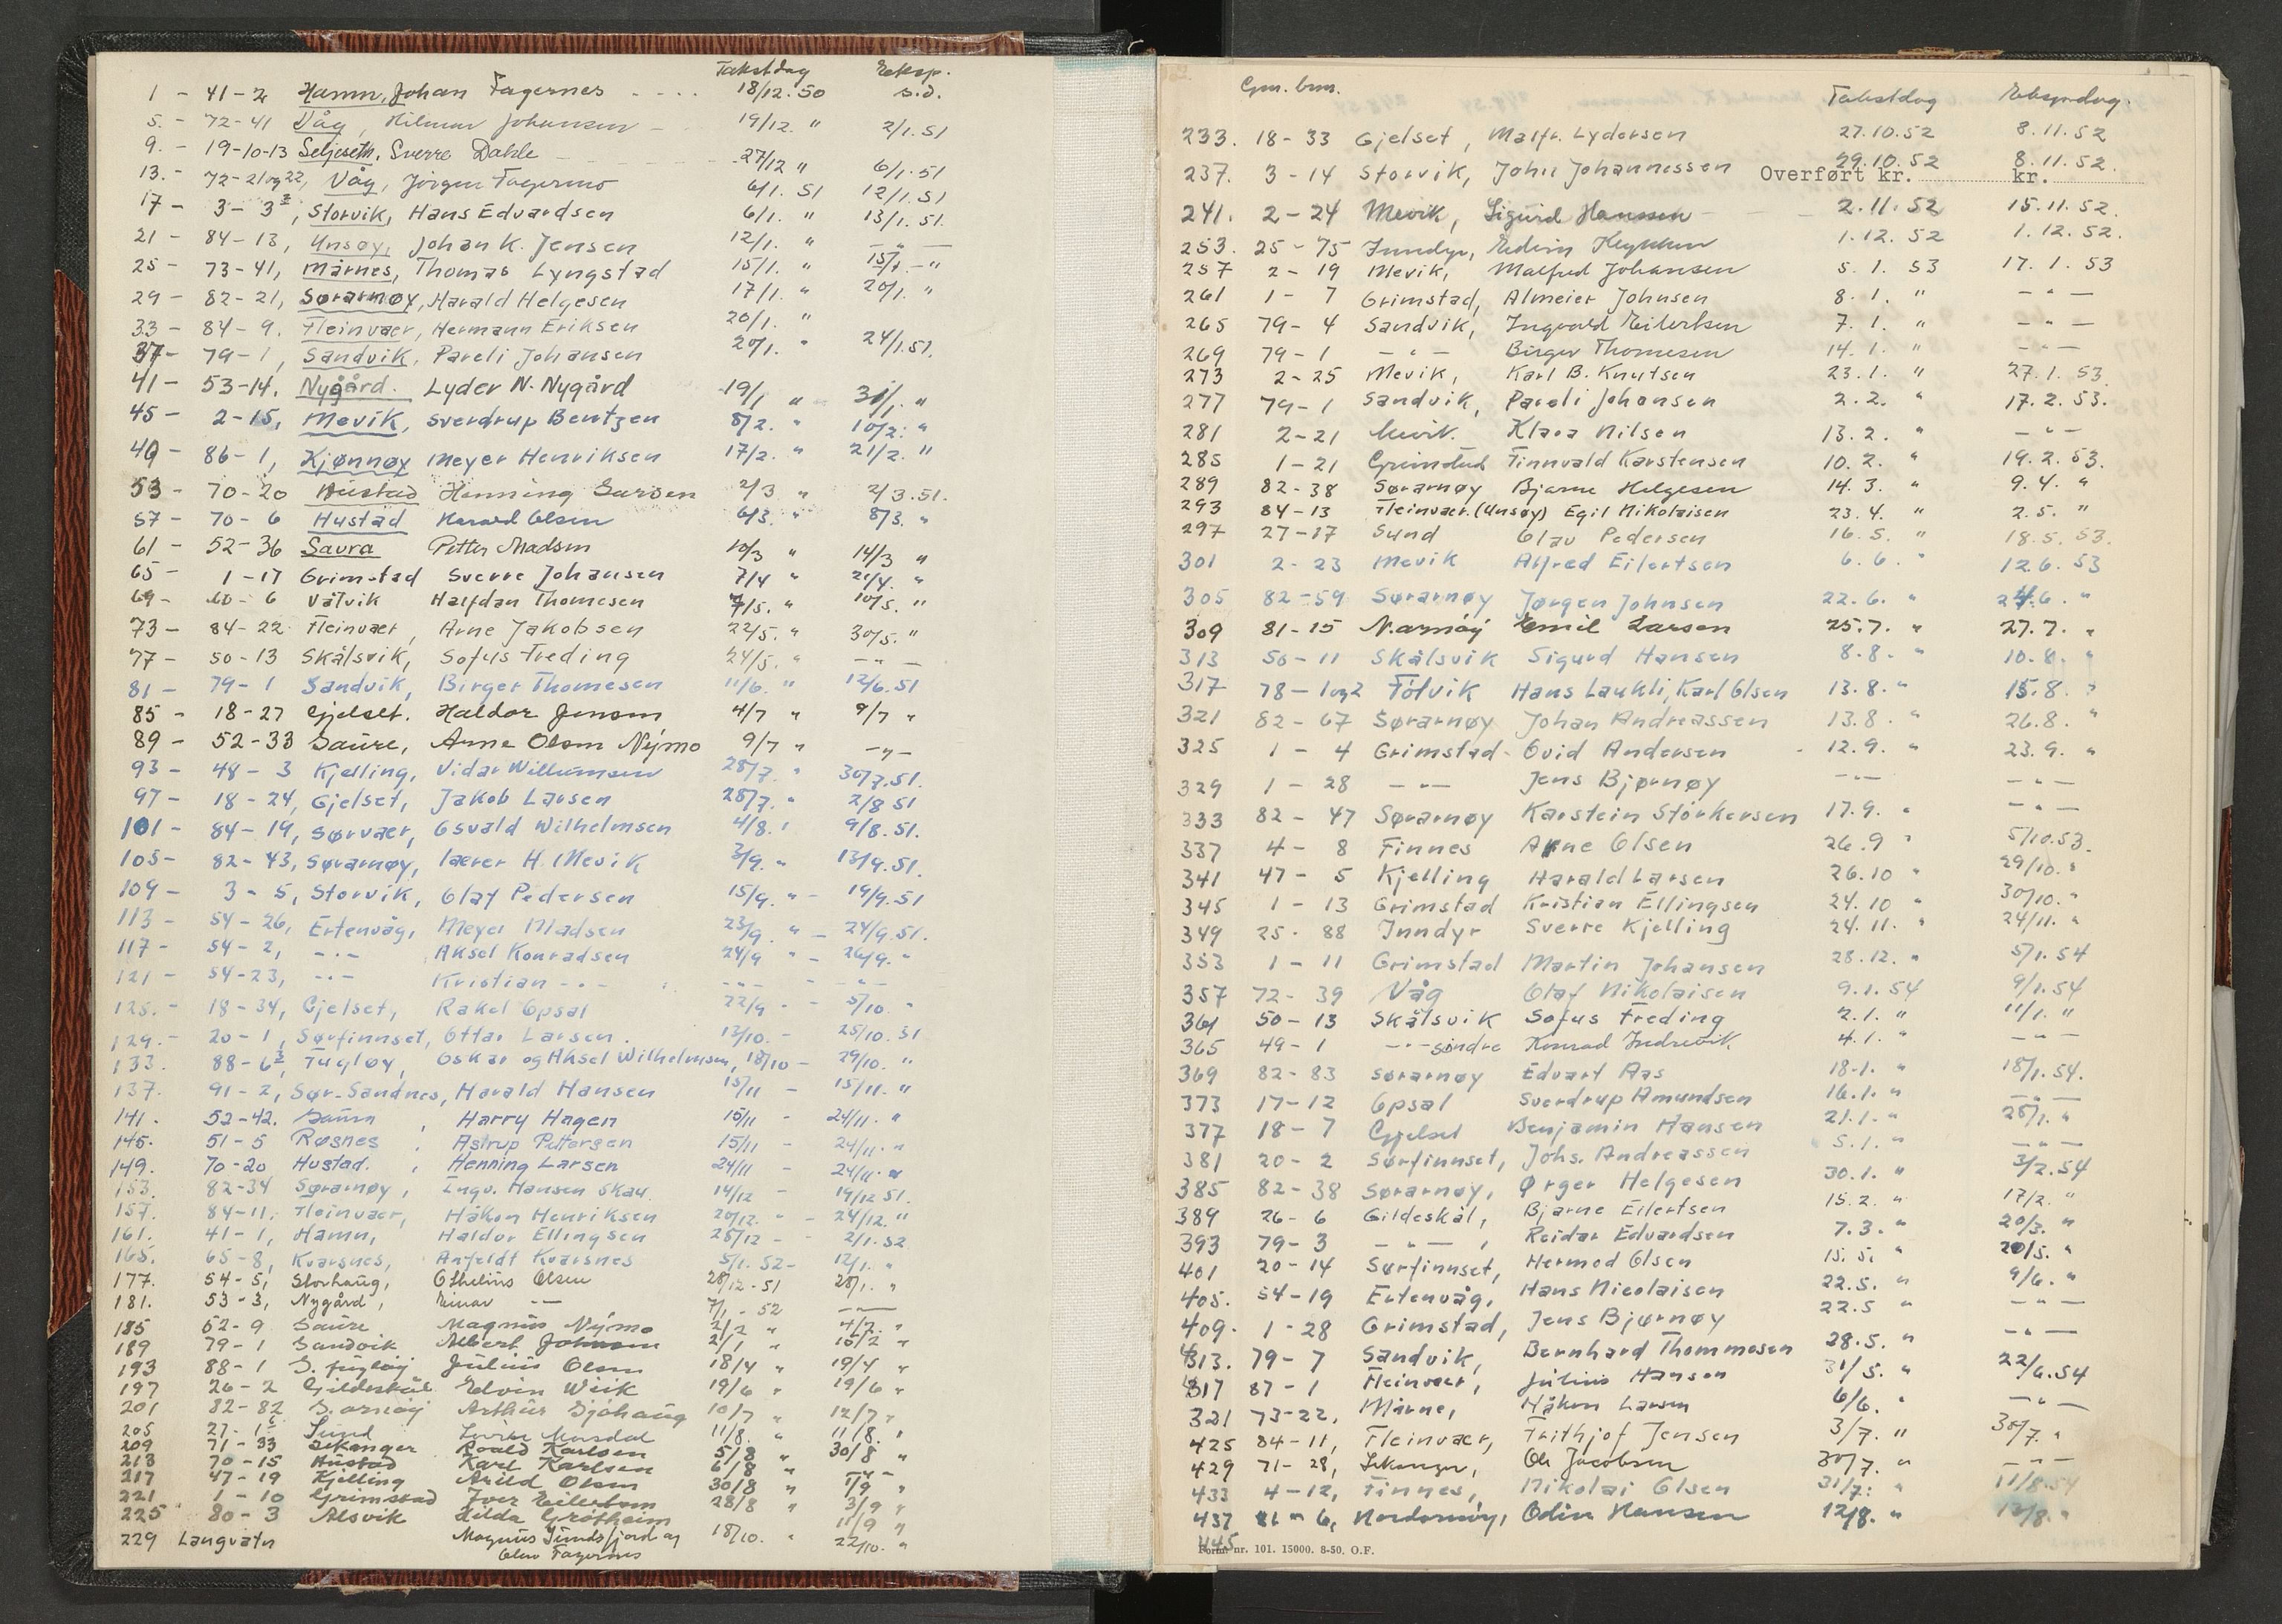 Takstdag Eksp.
1 - 41-2 Hamn, Johan Fagernes - - - - 18/12. 50 s.d.
5. - 72-41 Våg, Hilmar Johansen - 19/12. " 2/1. 51
9. - 19-10-13 Seljeseth, Sverre Dahle - - - - 27/12 " 6/1. 51
13. - 72-21 og 22, Våg, Jörgen Fagermo 6/1. 51 12/1. 51
17 - 3-3, Storvik, Hans Edvardsen 6/1. " 13/1. 51.
21 - 84-13, Unsøy, Johan K. Jensen 12/1. " — " —
25 - 73-41, Mårnes, Thomas Lyngstad 15/1. " 15/1. - "
29 - 82-21, Sørarnøy, Harald Helgesen 17/1. " 20/1. "
33 - 84-9. Fleinvaer, Hermann Eriksen 20/1. "
37 - 79-1, Sandvik, Pareli Johansen 20/1. " 24/1. 51.
41 - 53-14. Nygård. Lyder N. Nygård 19/1 " 31/1. "
45 - 2-15, Mevik, Sverdrup Bentzen 8/2. " 10/2. "
49 - 86-1, Kjønnøy Meyer Henriksen 17/2. " 21/2. "
53 - 70-20 Hustad Henning Larsen 2/3 " 2/3. 51.
57 - 70-6 Hustad Harald Olsen 6/3. " 8/3. "
61 - 52-36 Saura Petter Madsen 10/3 " 14/3 "
65 - 1-17 Grimstad Sverre Johansen 7/4 " 21/4. "
69 - 60-6 Våtvik Halfdan Thomesen 7/5. " 10/5. "
73 - 84-22 Fleinvaer, Arne Jakobsen 22/5. " 30/5. "
77 - 50-13 Skålsvik, Sofus Freding 24/5. " — " —
81 - 79-1 Sandvik, Birger Thomesen 11/6. " 12/6. 51
85 - 18-27 Gjelset. Haldor Jensen 4/7 " 9/7 "
89 - 52-33 Saure, Arne Olsen Nymo 9/7 " — " —
93 - 48-3 Kjelling, Vidar Willumsen 28/7. " 30/7. 51.
97 - 18-24, Gjelset, Jakob Larsen 28/7. " 2/8 51
101 - 84-19, Sørvaer, Osvald Wilhelmsen 4/8. " 9/8. 51.
105 - 82-43, Sørarnøy, laerer H. Mevik 3/9. " 13/9. 51.
109 - 3-5, Storvik, Olaf Pedersen 15/9. " - 19/9. 51
113 - 54-26, Ertenvåg, Meyer Madsen 23/9. " - 24/9. 51.
117 - 54-2, - " - Aksel Konradsen 24/9 " - 26/9. "
121 - 54-23, - " - Kristian - " - - " - - " -
125. - 18-34, Gjelset, Rakel Opsal 22/9 - - 5/10 "
129. - 20-1, Sørfinnset, Ottar Larsen. 12/10. - 25/10. 51
133. 88-6, Fugløy, Oskar og Aksel Wilhelmsen, 18/10 - 29/10. "
137. 91-2, Sør-Sandnes, Harald Hansen 15/11 - 15/11. "
141. 52-42. Saura, Harry Hagen 15/11 - 24/11. "
145. 51-5 Røsnes, Astrup Pettersen 15/11 - 24/11. "
149. 70-20 Hustad, Henning Larsen 24/11 - 24/11. "
153. 82-34 Sørarnøy, Ingv. Hansen Skau. 14/12 - 19/12 51.
157. 84-11. Fleinvaer, Håkon Henriksen 20/12. " - 24/12. "
161. 41-1, Hamn, Haldor Ellingsen 28/12 - - 2/1. 52
165. 65-8, Kvarsnes, Anfeldt Kvarsnes 5/1. 52 - 12/1. "
177. 54-5, Storhaug, Othelius Olsen 28/12 - 51 28/1. "
181. 53-3, Nygård, Einar — " — 7/1 - 52 — " —
185 52-9 Saure Magnus Nymo 2/2 " 4/2. "
189 79-1 Sandvik Albert Johnsen 2/1 " 15/2 "
193 88-1 S. fugløy Julius Olsen 18/4 " 19/4 "
197 26-2 Gildeskål Edvin Wiik 19/6 " 19/6 "
201 82-82 S. arnøy Arthur Sjøhaug 10/7 " 12/7 "
205 27-1 Sund Mosdal 11/8. " 11/8. "
209 71-33 Lekanger Roald Karlsen 5/8 " 30/8 "
213 70-15 Hustad Karl Karlsen 6/8 " — " —
217 47-19 Kjelling Arild Olsen 30/8 " 1/9 "
221 1-10 Grimstad Iver Eilertsen 28/8 " 3/9 "
225 80-3 Alsvik Hilda Grøtheim 11/9 "
229 Langvatn Magnus Sundsfjord og 18/10. " 22/10. "
Olav Fagernes
Gnr. bnr. Takstdag Ekspndag.
233. 18-33 Gjelset, Malfr. Lydersen 27.10.52 8.11.52
237. 3-14 Storvik, John Johannessen 29.10.52 8.11.52.
Overført kr. kr.
241. 2-24 Mevik, Sigurd Hanssen - 2.11.52 15.11.52.
253. 25-75 Inndyr, Edvin Heykken 1.12.52 1.12.52.
257 2-19 Mevik, Malfred Johansen 5.1.53 17.1.53
261 1-7 Grimstad, Almeier Johnsen 8.1. " — " —
265 79-4 Sandvik, Ingvald Eilertsen 7.1. " — " —
269 79-1 — " — Birger Thomesen 14.1. " — " —
273 2-25 Mevik, Karl B. Knutsen 23.1. " 27.1.53.
277 79-1 Sandvik, Pareli Johansen 2.2. " 17.2.53.
281 2-21 Mevik. Klara Nilsen 13.2. " — " —
285 1-21 Grimstad Finnvald Karstensen 10.2. " 19.2.53.
289 82-38 Sørarnøy Bjarne Helgesen 14.3. " 9.4. "
293 84-13 Fleinvaer. (Unsøy) Egil Nikolaisen 23.4. " 2.5. "
297 27-17 Sund Olav Pedersen 16.5. " 18.5.53.
301 2-23 Mevik Alfred Eilertsen 6.6. " 12.6.53
305 82-59 Sørarnøy Jørgen Johnsen 22.6. " 24.6. "
309 81-15 N.arnöy Emil Larsen 25.7. " 27.7. "
313 50-11 Skålsvik Sigurd Hansen 8.8. " 10.8. "
317 78-1 og 2 Tólvik Hans Laukli, Karl Olsen 13.8. " 15.8. "
321 82-67 Sørarnøy Johan Andreassen 13.8. " 26.8. "
325 1-4 Grimstad - Ovid Andersen - 12.9. " 23.9. "
329 1-28 — " — Jens Bjørnøy — " — — " —
333 82-47 Sørarnøy Karstein Storkersen 17.9. " — " —
337 4-8 Finnes Arne Olsen 26.9 " 5/10.53.
341 47-5 Kjelling Harald Larsen 26.10 " 29/10. "
345 1-13 Grimstad Kristian Ellingsen 24.10 " 30/10. "
349 25-88 Inndyr Sverre Kjelling 24.11. " 24/11. "
353 1-11 Grimstad Martin Johansen 28.12. " 5/1.54
357 72-39 Våg Olaf Nikolaisen 9.1.54 9/1.54
361 50-13 Skålsvik Sofus Freding 2.1. " 11/1. "
365 49-1 - " - søndre Konrad Indrevik. 4.1. " — " —
369 82-83 Sørarnøy Edvart Aas 18.1. " 18/1.54.
373 17-12 Opsal Sverdrup Amundsen 16.1. " — " —
377 18-7 Gjelset Benjamin Hansen 21.1. " 25/1. "
381 20-2 Sørfinnset, Johs. Andreassen 5.1. " — " —
385 82-38 Sørarnøy, Ørger Helgesen 30.1. " 3/2.54
389 26-6 Gildeskål, Bjarne Eilertsen 15.2. " 17/2. "
393 79-3 — " —, Reidar Edvardsen 7.3. " 20/3. "
401 20-14 Sørfinnset, Hermod Olsen 15.5. 20/5. "
405. 54-19 Ertenvåg, Hans Nicolaisen 22.5. " 9/6. "
409. 1-28 Grimstad, Jens Bjørnøy 22.5 " — " —
413. 79-7 Sandvik, Bernhard Thommesen 28.5. " — " —
417 87-1 Fleinvaer, Julius Hansen 31/5. " 22/6.54
321 73-22, Mårne, Håkon Larsen 6/6. " — " —
425 84-11, Fleinvaer, Frithjof Jensen 3/7. " 30/7. "
429 71-28, Lekanger, Ole Jacobsen 30/7. " — " —
433 4-12, Finnes, Nikolai Olsen 31/7. " 11/8.54
437 81-6, Nordarnøy, Odin Hansen 12/8. " 13/8. "
445
Form nr. 101. 15000. 8-50. O.F.